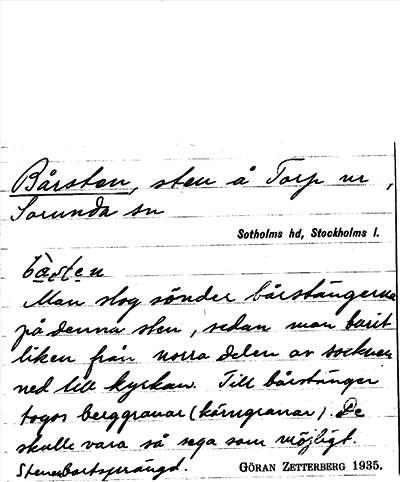 Bårsten, sten å Torp nr,
Sorunda sn
Sotholms hd, Stockholms l.
Man slog sönder bårstängerna
på denna sten, sedan man burit
liken från norra delen av socknen
ned till kyrkan. Till bårstänger
togos berggranar (kärngranar). De
skulle vara så sega som möjligt.
Stenen bortsprängd. GÖRAN ZETTERBERG 1935.